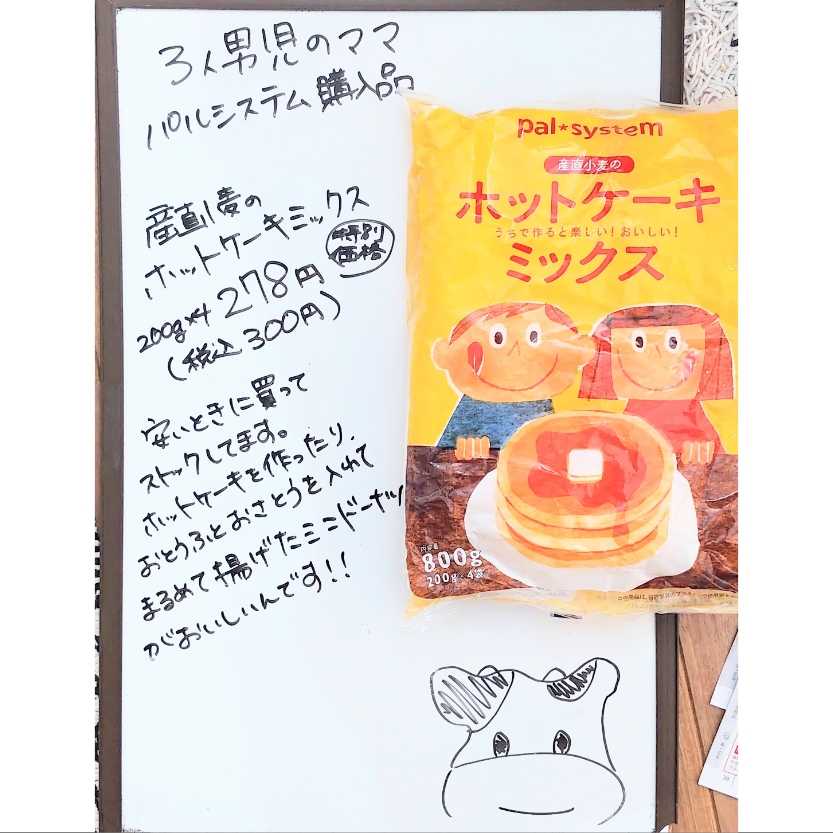 3人男児のママ
パルシステム購入品
産直小麦の
ホットケーキミックス
200g×4 278円
特別
価格
(税込300円)
安いときに買って
ストックしてます。
ホットケーキを作ったり、
おとうふとおさとうを入れて
まるめて揚げたミニドーナツ
がおいしいんです!!
pal*system
産直小麦の
ホットケーキ
うちで作ると楽しい!おいしい!
ミックス
内容量
800g
200g×4袋